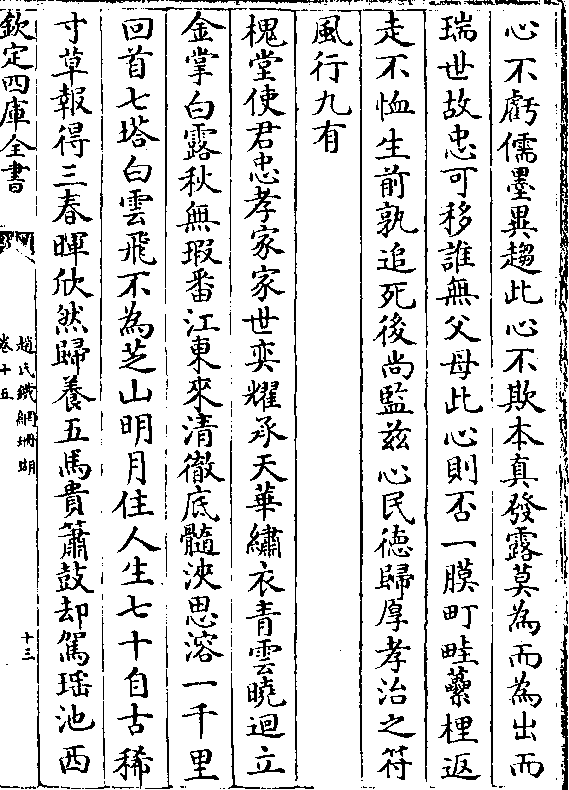 心不虧儒墨異趨此心不欺本真發露莫為而為出而
瑞世故忠可移誰無父母此心則否一膜町畦虆梩返
走不恤生前孰追死後尚監兹心民徳歸厚孝治之符
風行九有
槐堂使君忠孝家家世奕耀承天華繡衣青雲曉迴立
金掌白露秋無瑕番江東來清徹底髓浹思溶一千里
回首七塔白雲飛不為芝山明月住人生七十自古稀
寸草報得三春暉欣然歸養五馬貴簫鼓却駕瑶池西
欽定四庫全書
趙氏鐵網珊瑚
卷十五
十三